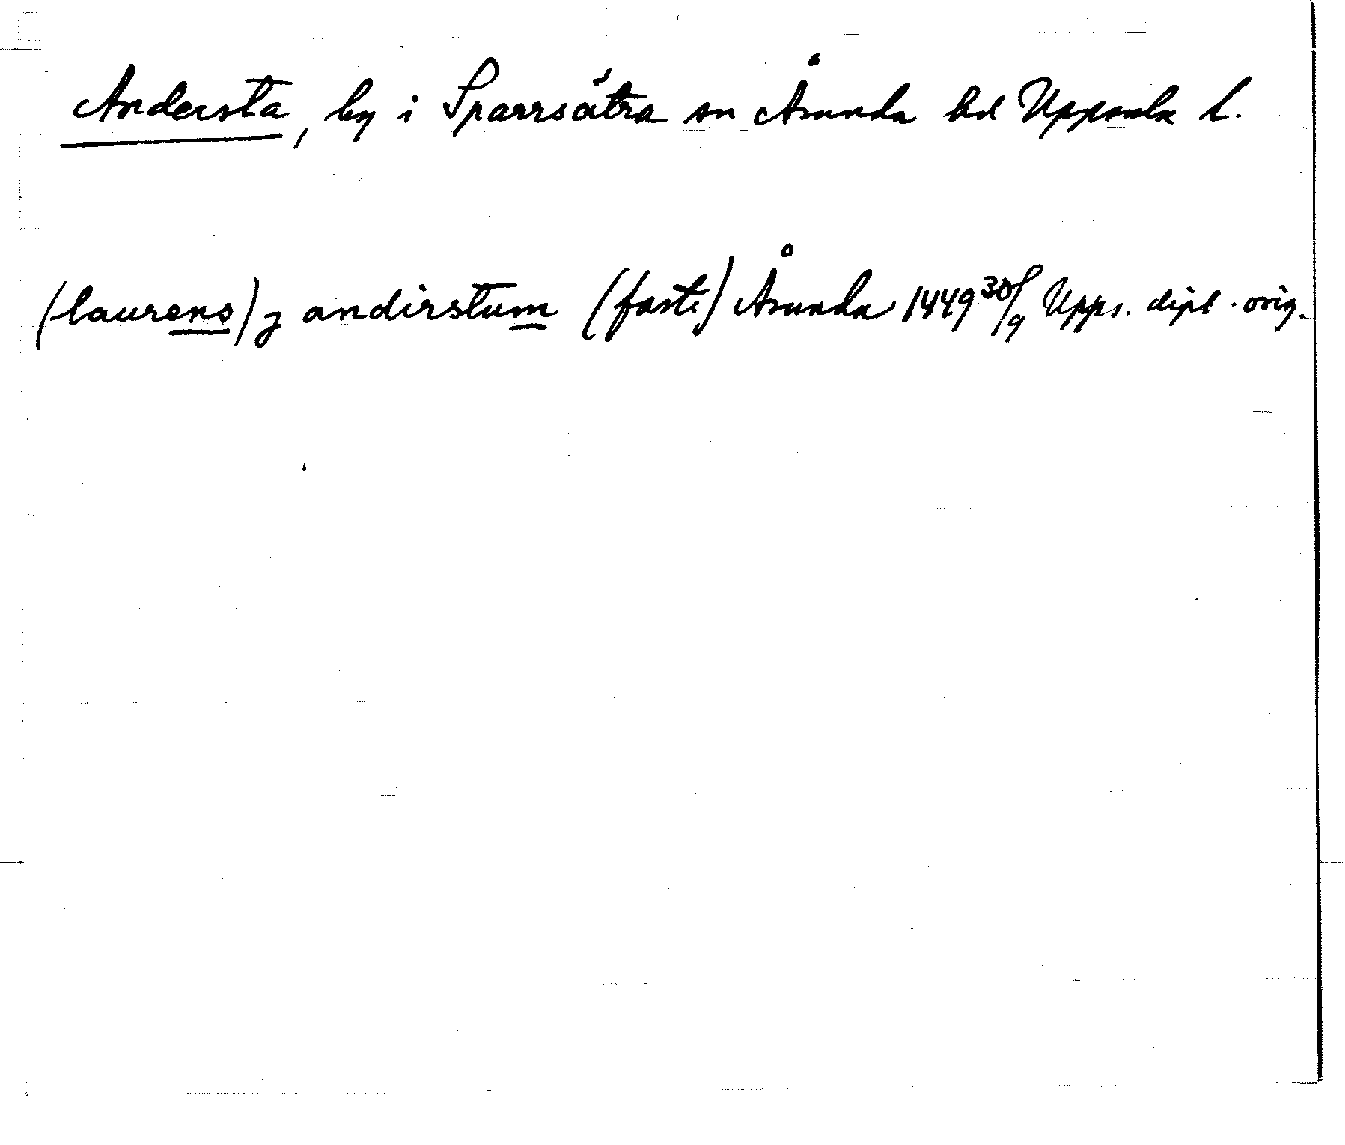 Andersta, by i Sparrsätra sn Åsunda hd Uppsala l.
(laurens) j andirstum (faste) Åsunda 1449 30/9 Upps. dipl. orig.